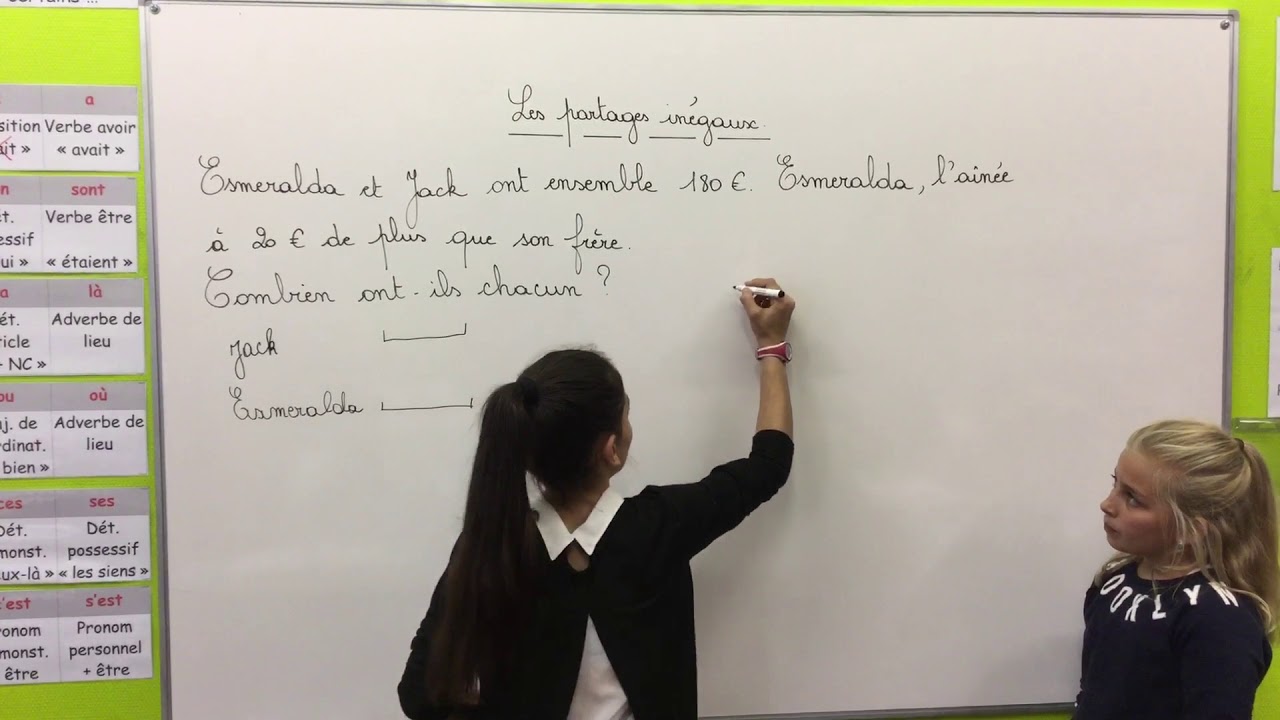 Les partages inégaux.
Esmeralda et Jack ont ensemble 180 €. Esmeralda, l'ainée
à 20 € de plus que son frère.
Combien ont-ils chacun ?
Jack
Esmeralda
a
sition
Verbe avoir
ait »
« avait »
sont
Verbe être
essif
ui »
« étaient »
a
là
ét.
Adverbe de
ticle
lieu
NC »
ou
où
j. de
Adverbe de
dinat.
lieu
bien »
ces
ses
Dét.
Dét.
monst.
possessif
ux-là »
« les siens »
c'est
s'est
ronom
Pronom
monst.
personnel
être
+ être
OOKLYN